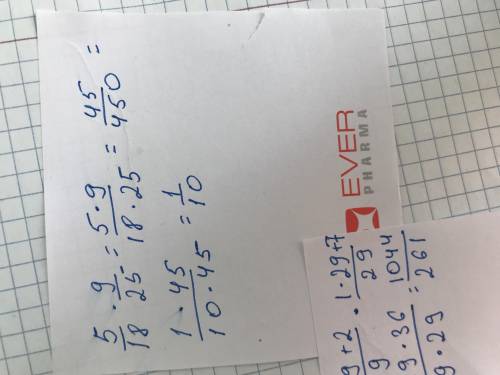 5/18 · 9/25 = 5·9/18·25 = 45/450 =
1·45/10·45 = 1/10
EVER
PHARMA
9+2/9 · 1·29+7/29
9·36/9·29 = 1044/261